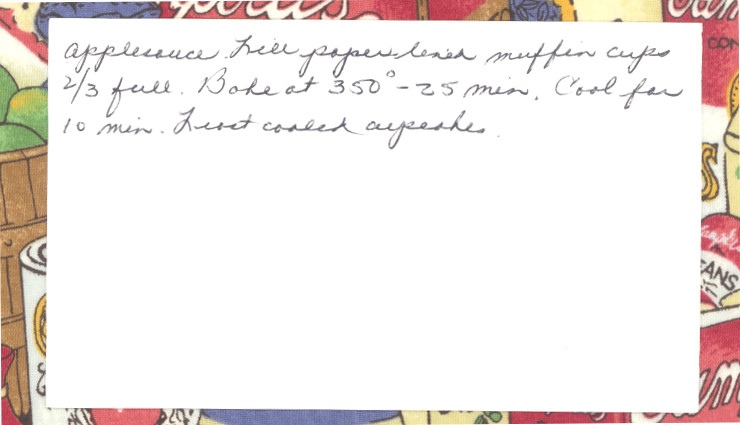 applesauce. Fill paper-lined muffin cups
2/3 full. Bake at 350° - 25 min. Cool for
10 min. Frost cooled cupcakes.
CON
ANS